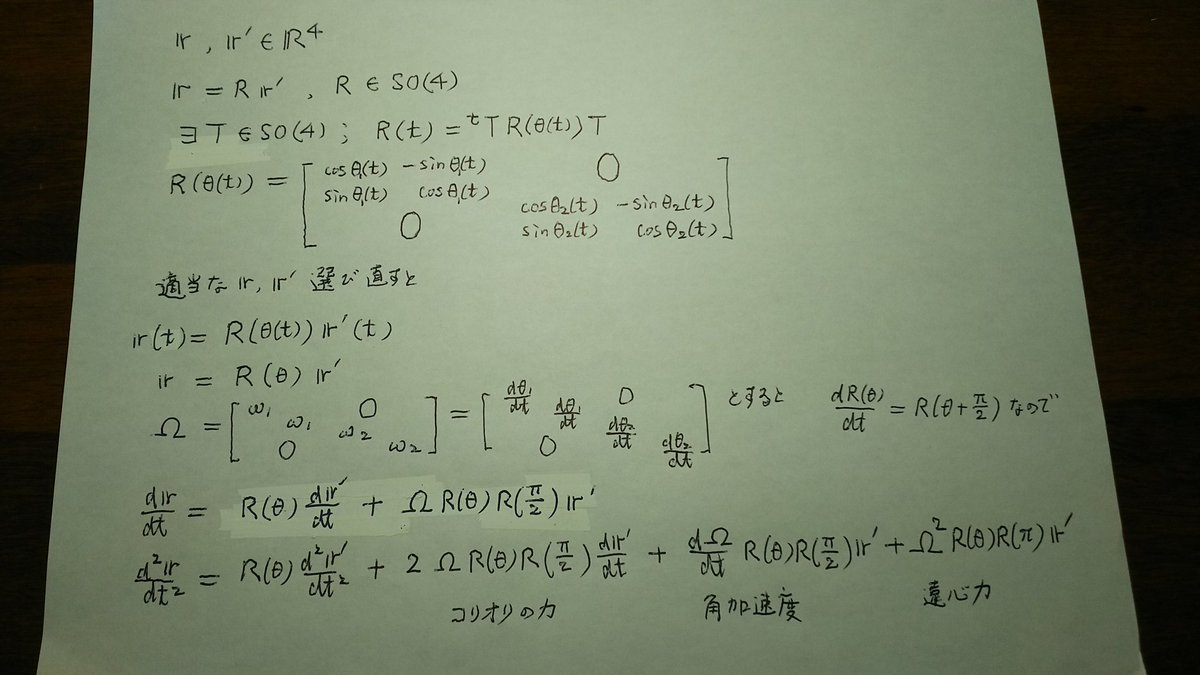 𝕣, 𝕣′ ∈ ℝ⁴
𝕣 = R 𝕣′, R ∈ SO(4)
∃T ∈ SO(4); R(t) = ᵗT R(θ(t)) T
R(θ(t)) = [ cosθ₁(t) −sinθ₁(t) 0
sinθ₁(t) cosθ₁(t)
cosθ₂(t) −sinθ₂(t)
0 sinθ₂(t) cosθ₂(t) ]
適当な 𝕣, 𝕣′ 選び直すと
𝕣(t) = R(θ(t)) 𝕣′(t)
𝕣 = R(θ) 𝕣′
Ω = [ ω₁ ω₁ 0 0 ω₂ ω₂ ] = [ dθ₁/dt dθ₁/dt 0 0 dθ₂/dt dθ₂/dt ] とすると dR(θ)/dt = R(θ+π/2) なので
d𝕣/dt = R(θ) d𝕣′/dt + Ω R(θ) R(π/2) 𝕣′
d²𝕣/dt² = R(θ) d²𝕣′/dt² + 2 Ω R(θ) R(π/2) d𝕣′/dt + dΩ/dt R(θ) R(π/2) 𝕣′ + Ω² R(θ) R(π) 𝕣′
コリオリの力 角加速度 遠心力